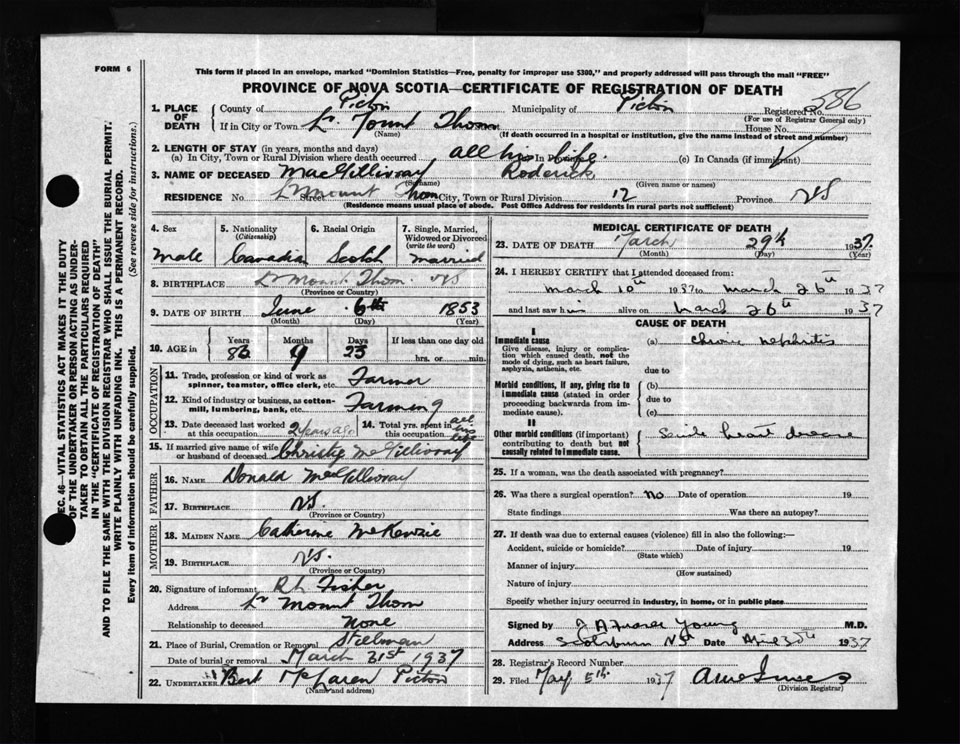 FORM 6
This form if placed in an envelope, marked "Dominion Statistics—Free, penalty for improper use $300," and properly addressed will pass through the mail "FREE"
PROVINCE OF NOVA SCOTIA—CERTIFICATE OF REGISTRATION OF DEATH
1. PLACE OF DEATH County of Pictou Municipality of Pictou Registered No. 586
(For use of Registrar General only)
If in City or Town Mount Thom House No.
(Name) (If death occurred in a hospital or institution, give the name instead of street and number)
2. LENGTH OF STAY (in years, months and days)
(a) In City, Town or Rural Division where death occurred all his life. In Province (c) In Canada (if immigrant)
3. NAME OF DECEASED MacGillivray Roderick
(Surname) (Given name or names)
RESIDENCE No. Street Mount Thom City, Town or Rural Division 12 Province NS
(Residence means usual place of abode. Post Office Address for residents in rural parts not sufficient)
4. Sex 5. Nationality (Citizenship) 6. Racial Origin 7. Single, Married, Widowed or Divorced (write the word)
Male Canadian Scotch married
8. BIRTHPLACE Mount Thom NS
(Province or Country)
9. DATE OF BIRTH June 6th 1853
(Month) (Day) (Year)
10. AGE in Years Months Days If less than one day old
83 9 23 hrs. or min.
OCCUPATION
11. Trade, profession or kind of work as spinner, teamster, office clerk, etc. Farmer
12. Kind of industry or business, as cotten-mill, lumbering, bank, etc. Farming
13. Date deceased last worked at this occupation 2 years ago 14. Total yrs. spent in this occupation all his life
15. If married give name of wife or husband of deceased Christie McGillivray
FATHER
16. NAME Donald MacGillivray
17. BIRTHPLACE NS.
(Province or Country)
MOTHER
18. MAIDEN NAME Catherine McKenzie
19. BIRTHPLACE NS.
(Province or Country)
20. Signature of informant R L Fisher
Address Mount Thom
Relationship to deceased None
21. Place of Burial, Cremation or Removal Stillman
Date of burial or removal March 31st 1937
22. UNDERTAKER Bert McLaren Pictou
(Name and address)
MEDICAL CERTIFICATE OF DEATH
23. DATE OF DEATH March 29th 1937.
(Month) (Day) (Year)
24. I HEREBY CERTIFY that I attended deceased from:
March 10th 1937 to March 26th 1937
and last saw him alive on March 26th 1937
CAUSE OF DEATH
I
Immediate cause (a) chronic nephritis
Give disease, injury or complication which caused death, not the mode of dying, such as heart failure, asphyxia, asthenia, etc.
due to
Morbid conditions, if any, giving rise to immediate cause (stated in order proceeding backwards from immediate cause).
(b)
due to
(c)
II
Other morbid conditions (if important) contributing to death but not causally related to immediate cause. Senile heart disease
25. If a woman, was the death associated with pregnancy?
26. Was there a surgical operation? No Date of operation 19
State findings Was there an autopsy?
27. If death was due to external causes (violence) fill in also the following:—
Accident, suicide or homicide? Date of injury 19
(State which)
Manner of injury
(How sustained)
Nature of injury
Specify whether injury occurred in industry, in home, or in public place
Signed by Young M.D.
Address Scotsburn NS Date April 1937
28. Registrar's Record Number
29. Filed May 5th. 1937
(Division Registrar)
SEC. 46—VITAL STATISTICS ACT MAKES IT THE DUTY OF THE UNDERTAKER OR PERSON ACTING AS UNDERTAKER TO OBTAIN ALL THE PARTICULARS REQUIRED IN THE "CERTIFICATE OF REGISTRATION OF DEATH"
AND TO FILE THE SAME WITH THE DIVISION REGISTRAR WHO SHALL ISSUE THE BURIAL PERMIT.
WRITE PLAINLY WITH UNFADING INK. THIS IS A PERMANENT RECORD.
Every item of information should be carefully supplied. (See reverse side for instructions.)